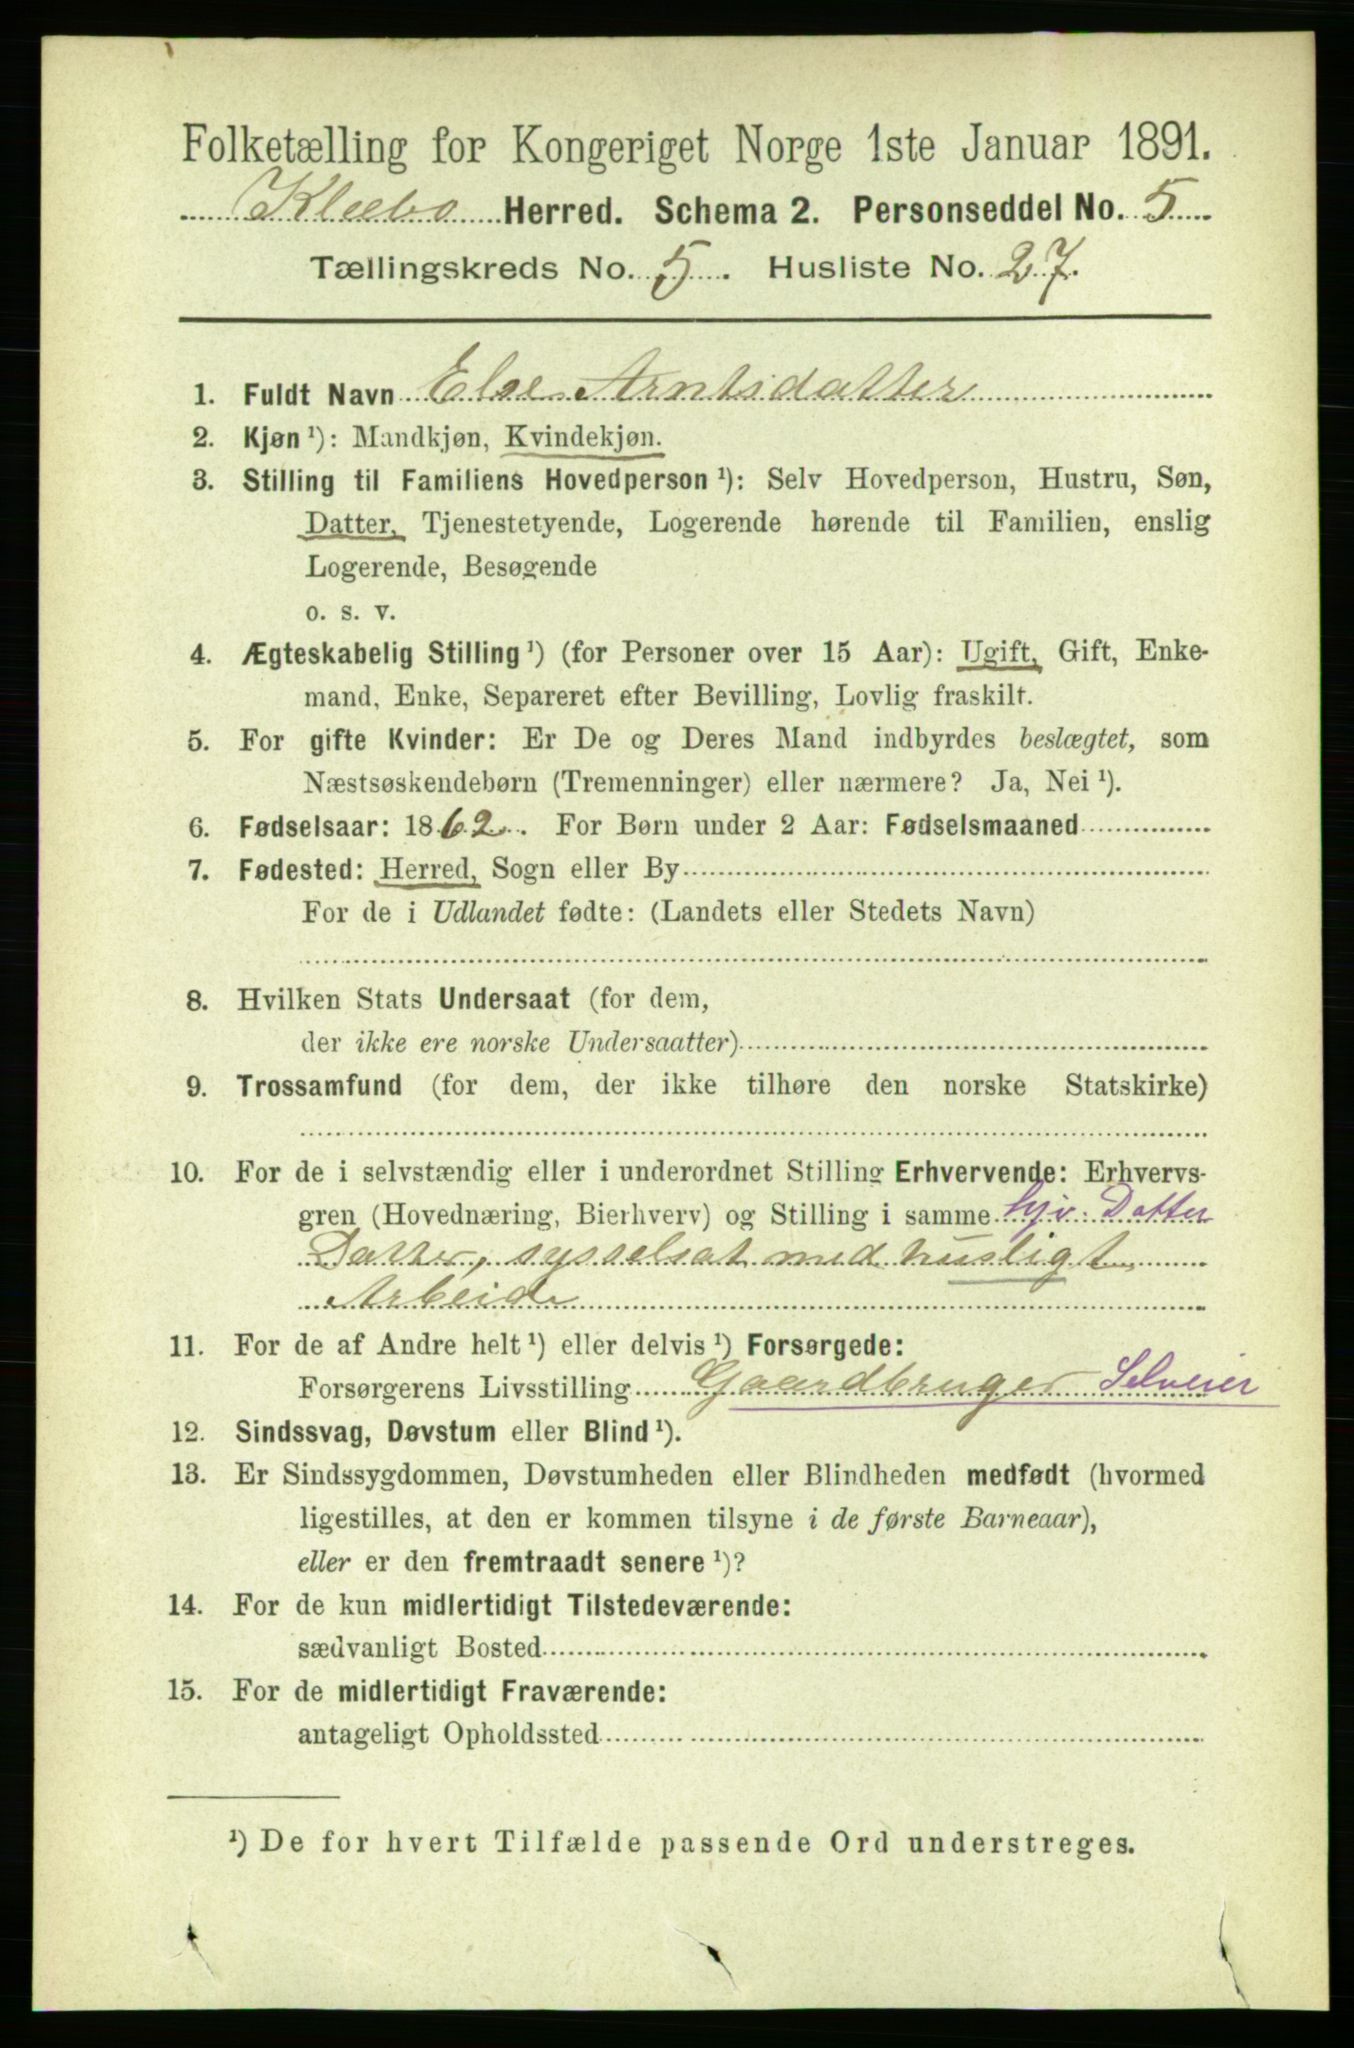 Folketælling for Kongeriget Norge 1ste Januar 1891.
Klæbo Herred. Schema 2. Personseddel No. 5
Tællingskreds No. 5. Husliste No. 27.
1. Fuldt Navn Else Arntsdatter
2. Kjøn ¹): Mandkjøn, Kvindekjøn.
3. Stilling til Familiens Hovedperson ¹): Selv Hovedperson, Hustru, Søn,
Datter, Tjenestetyende, Logerende hørende til Familien, enslig
Logerende, Besøgende
o. s. v.
4. Ægteskabelig Stilling ¹) (for Personer over 15 Aar): Ugift, Gift, Enke-
mand, Enke, Separeret efter Bevilling, Lovlig fraskilt.
5. For gifte Kvinder: Er De og Deres Mand indbyrdes beslægtet, som
Næstsøskendebørn (Tremenninger) eller nærmere? Ja, Nei ¹).
6. Fødselsaar: 1862. For Børn under 2 Aar: Fødselsmaaned
7. Fødested: Herred, Sogn eller By
For de i Udlandet fødte: (Landets eller Stedets Navn)
8. Hvilken Stats Undersaat (for dem,
der ikke ere norske Undersaatter)
9. Trossamfund (for dem, der ikke tilhøre den norske Statskirke)
10. For de i selvstændig eller i underordnet Stilling Erhvervende: Erhvervs-
gren (Hovednæring, Bierhverv) og Stilling i samme hjv. Datter
Datter, sysselsat med husligt
Arbeide
11. For de af Andre helt ¹) eller delvis ¹) Forsørgede:
Forsørgerens Livsstilling Gaardbruger Selveier
12. Sindssvag, Døvstum eller Blind ¹).
13. Er Sindssygdommen, Døvstumheden eller Blindheden medfødt (hvormed
ligestilles, at den er kommen tilsyne i de første Barneaar),
eller er den fremtraadt senere ¹)?
14. For de kun midlertidigt Tilstedeværende:
sædvanligt Bosted
15. For de midlertidigt Fraværende:
antageligt Opholdssted
¹) De for hvert Tilfælde passende Ord understreges.